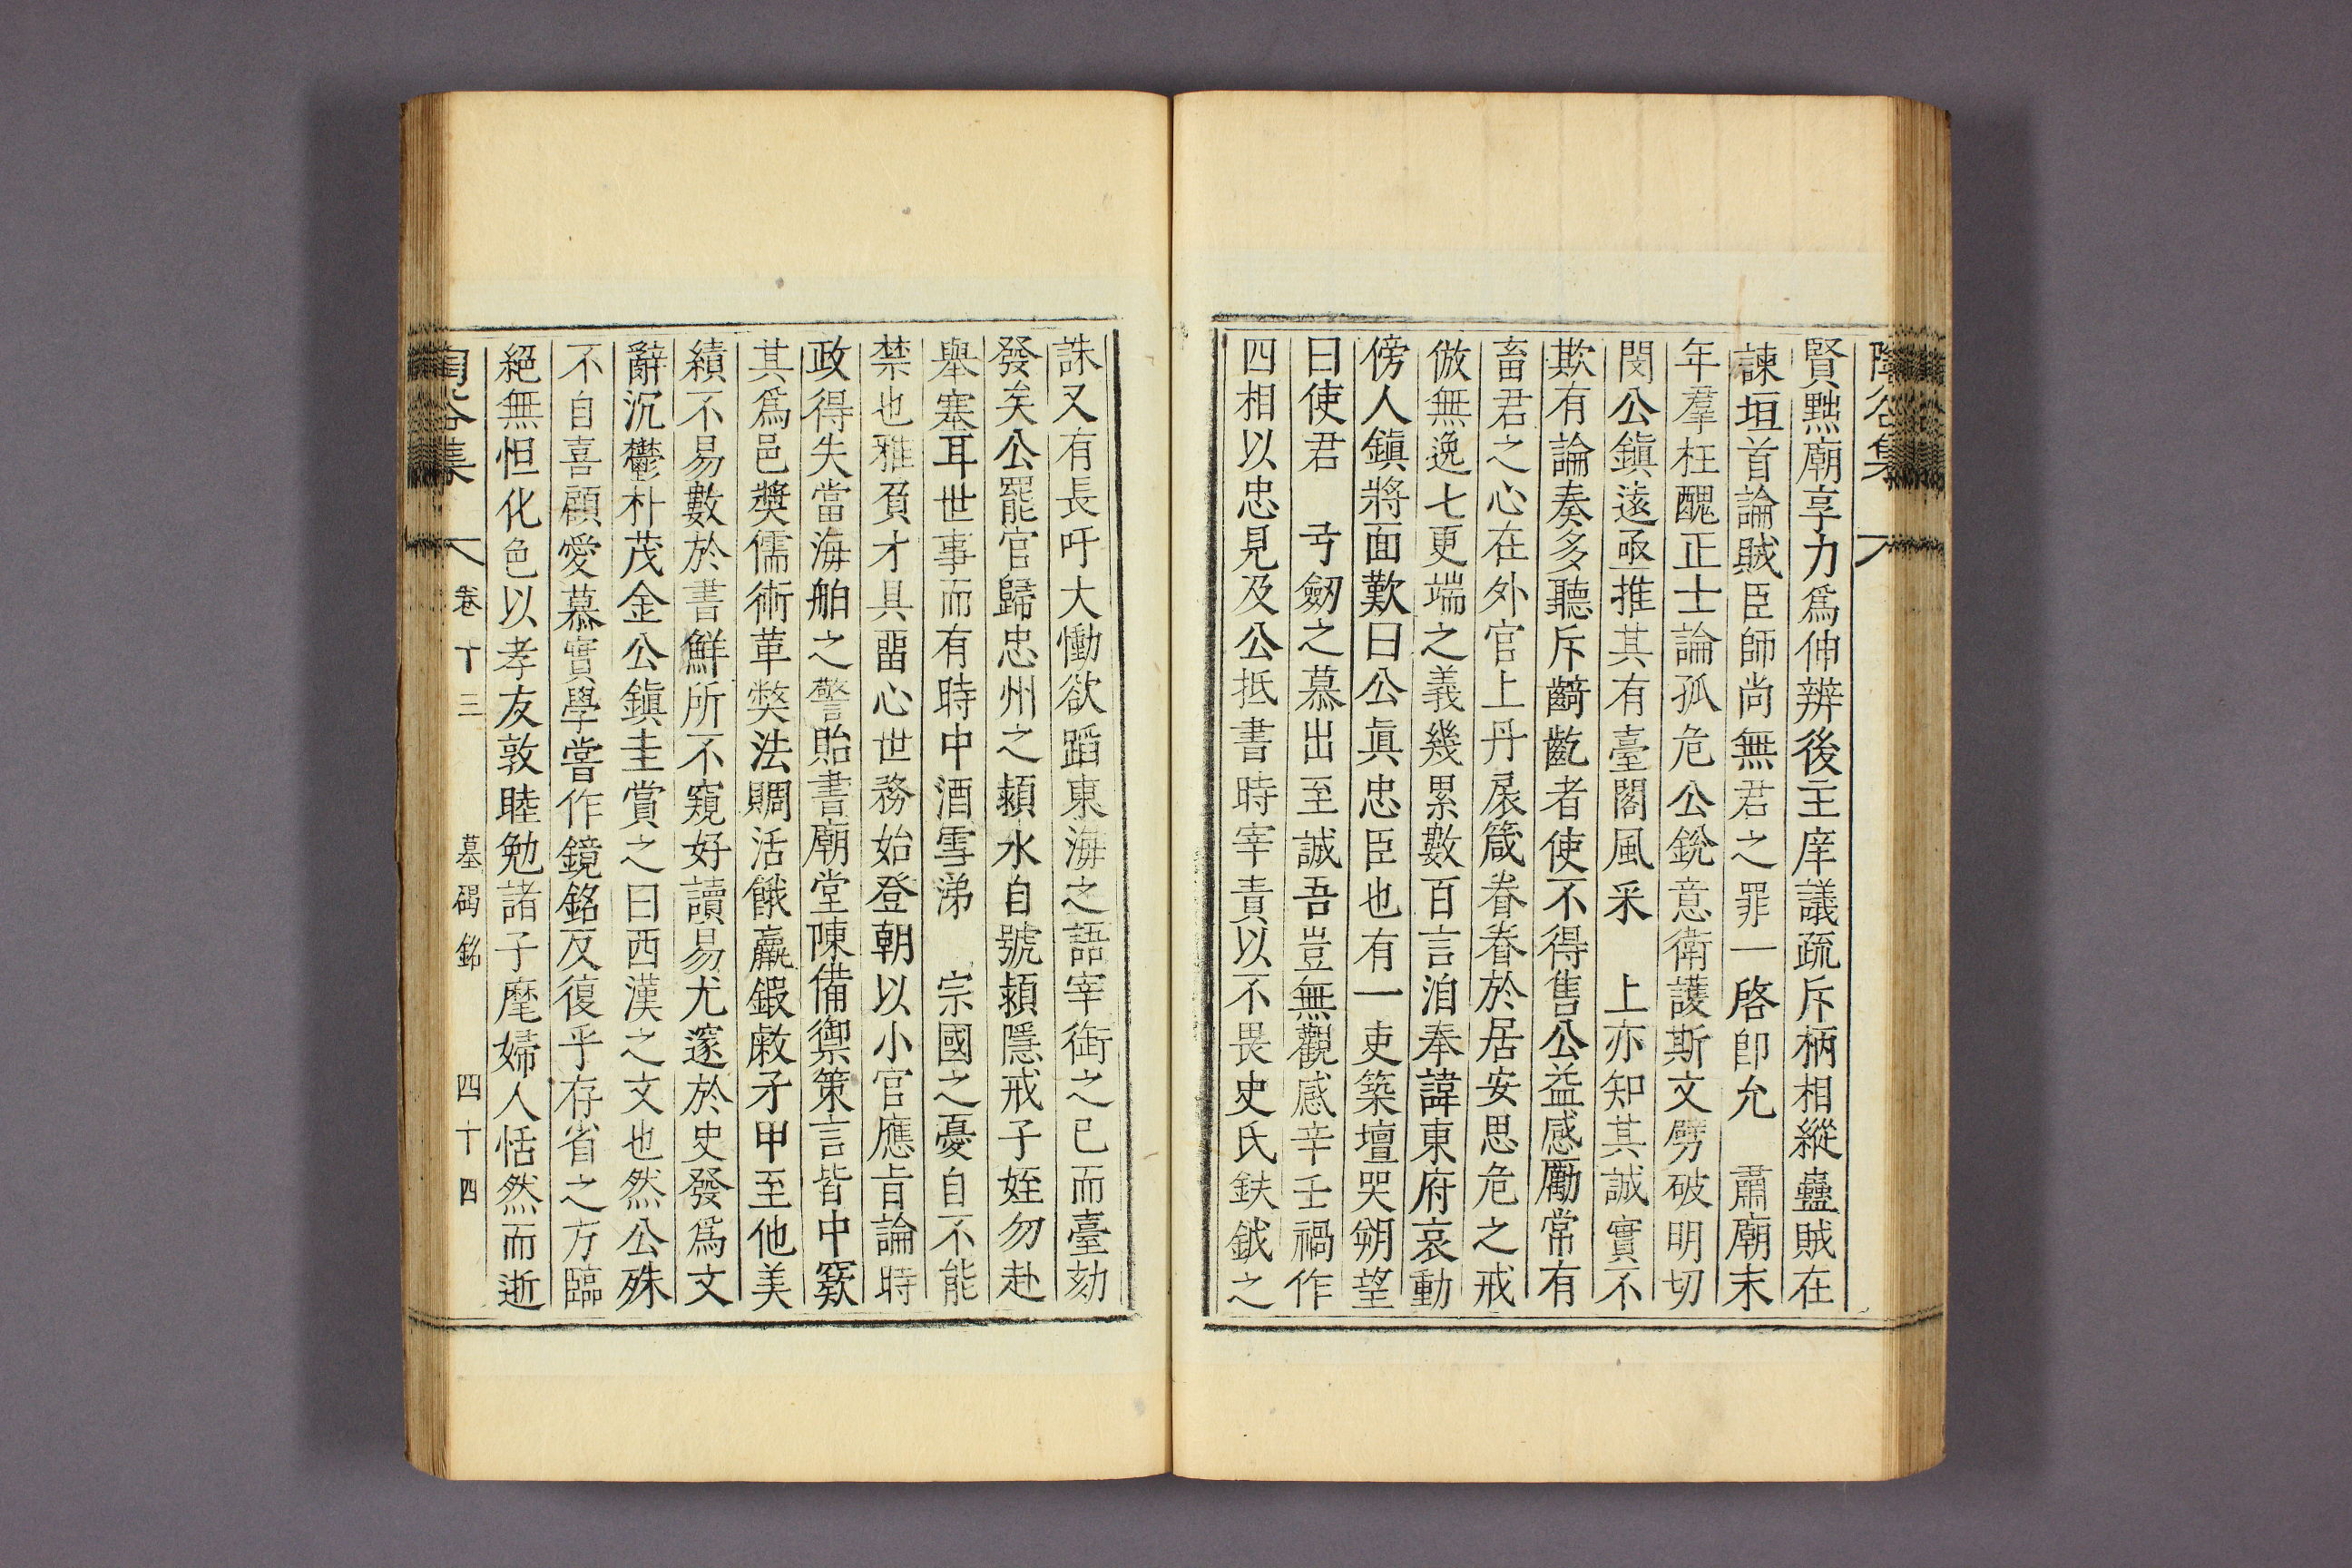 陶谷集
賢黜廟享力爲伸辨後主庠議疏斥柄相縱蠱賊在
諫垣首論賊臣師尚無君之罪一啓卽允　肅廟末
年羣枉醜正士論孤危公銳意衛護斯文劈破明切
閔公鎭遠亟推其有臺閣風采　上亦知其誠實不
欺有論奏多聽斥齮齕者使不得售公益感勵常有
畜君之心在外官上丹扆箴眷眷於居安思危之戒
倣無逸七更端之義幾累數百言洎奉諱東府哀動
傍人鎭將面歎曰公眞忠臣也有一吏築壇哭朔望
曰使君　弓劒之慕出至誠吾豈無觀感辛壬禍作
四相以忠見及公抵書時宰責以不畏史氏鈇鉞之
誅又有長吁大慟欲蹈東海之語宰銜之已而臺劾
發矣公罷官歸忠州之潁水自號潁隱戒子姪勿赴
擧塞耳世事而有時中酒雪涕　宗國之憂自不能
禁也雅負才具留心世務始登朝以小官應旨論時
政得失當海舶之警貽書廟堂陳備禦策言皆中窾
其爲邑奬儒術革弊法賙活餓羸鍜敹矛甲至他美
績不易數於書鮮所不窺好讀易尤邃於史發爲文
辭沉鬱朴茂金公鎭圭賞之曰西漢之文也然公殊
不自喜顧愛慕實學嘗作鏡銘反復乎存省之方臨
絕無怛化色以孝友敦睦勉諸子麾婦人恬然而逝
陶谷集　卷十三　墓碣銘　四十四